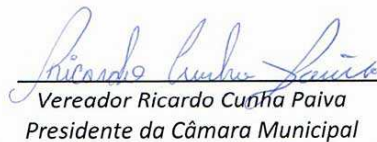 Ricardo Cunha Paiva
Vereador Ricardo Cunha Paiva
Presidente da Câmara Municipal